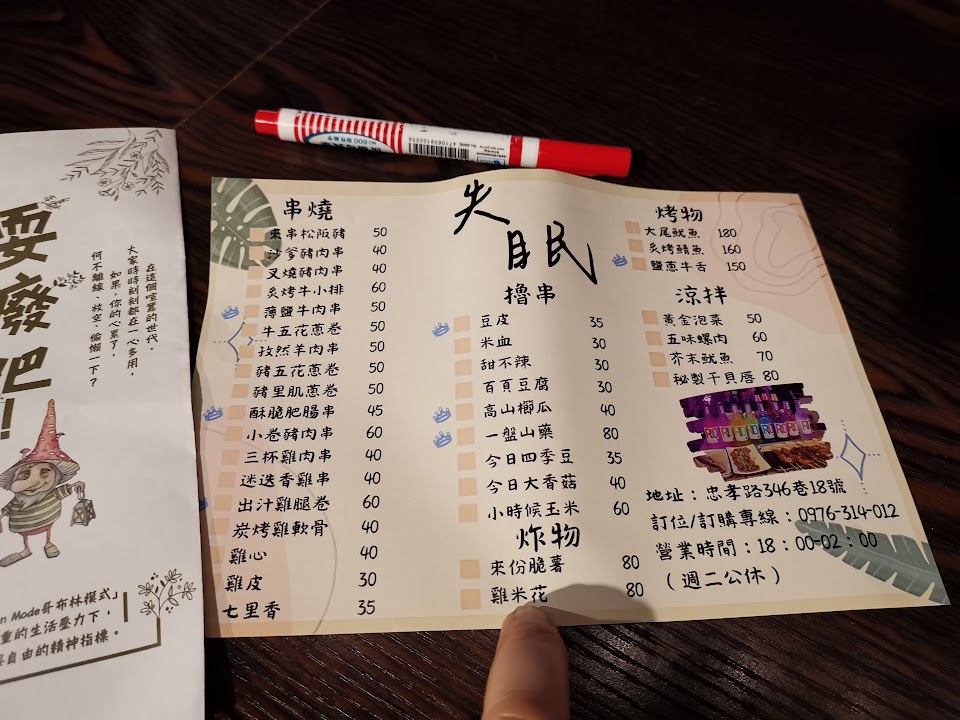 耍廢吧!
在這個喧囂的世代，
大家時時刻刻都在一心多用，
如果，你的心累了，
何不離線、放空、偷懶一下？
n Mode哥布林模式」
重的生活壓力下，
自由的精神指標。
NO.600
失眠
串燒
來串松阪豬 50
沙爹豬肉串 40
叉燒豬肉串 40
炙烤牛小排 60
薄鹽牛肉串 50
牛五花蔥卷 50
孜然羊肉串 50
豬五花蔥卷 50
豬里肌蔥卷 50
酥脆肥腸串 45
小卷豬肉串 60
三杯雞肉串 40
迷迭香雞串 40
出汁雞腿卷 60
炭烤雞軟骨 40
雞心 40
雞皮 30
七里香 35
擼串
豆皮 35
米血 30
甜不辣 30
百頁豆腐 30
高山櫛瓜 40
一盤山藥 80
今日四季豆 35
今日大香菇 40
小時候玉米 60
炸物
來份脆薯 80
雞米花 80
烤物
大尾魷魚 180
炙烤鯖魚 160
鹽蔥牛舌 150
涼拌
黃金泡菜 50
五味螺肉 60
芥末魷魚 70
秘製干貝唇 80
地址：忠孝路346巷18號
訂位/訂購專線：0976-314-012
營業時間：18：00-02：00
（週二公休）